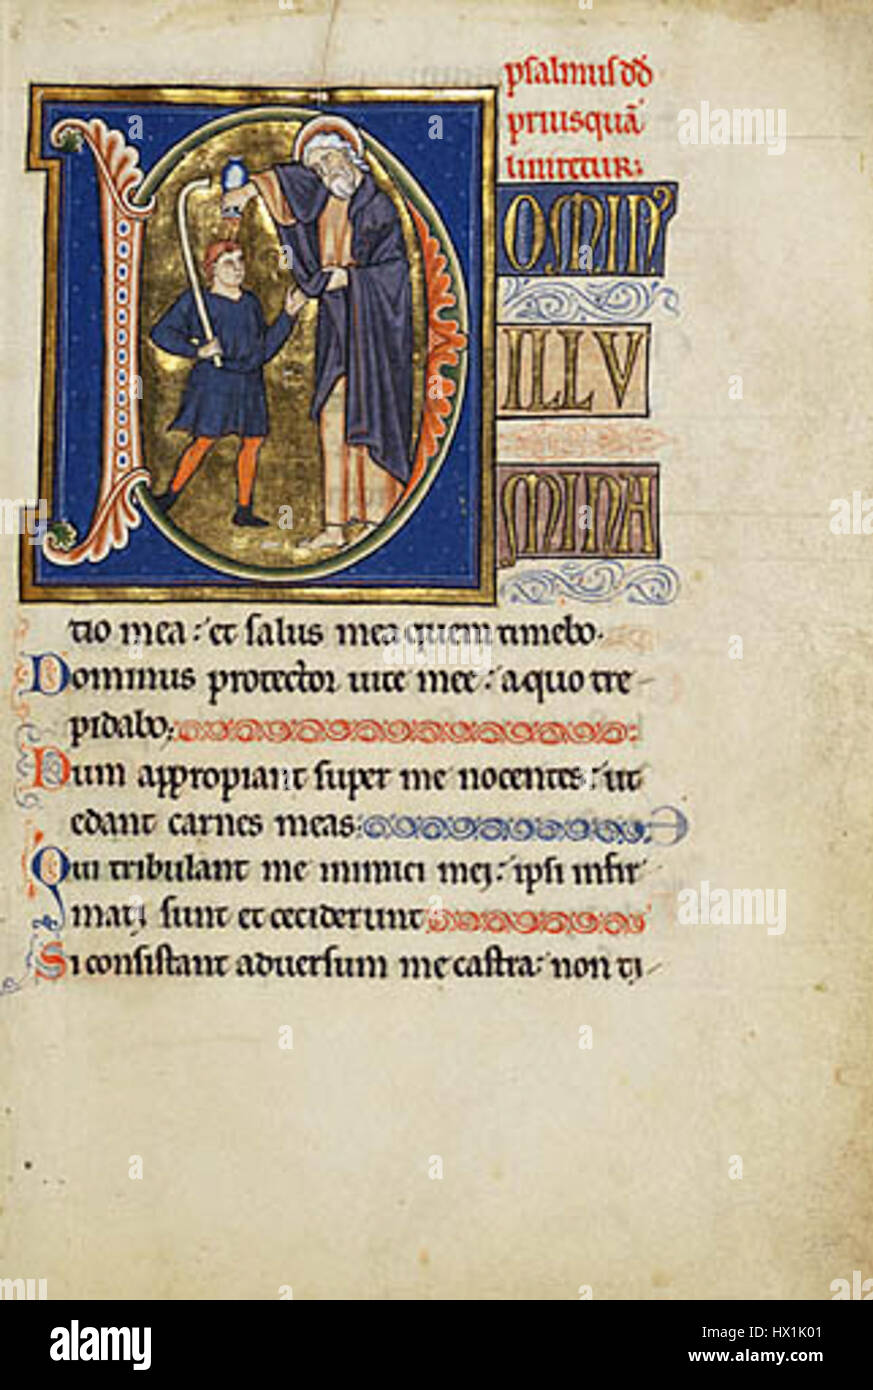 psalmus dd
priusquā
liniretur:
D OMIN'
ILLV
MINA
tio mea: et salus mea quem timebo.
Dominus protector uite mee: a quo tre-
pidabo:
Dum appropiant super me nocentes: ut
edant carnes meas:
Qui tribulant me inimici mei: ipsi infir-
mati sunt et ceciderunt
Si consistant aduersum me castra: non ti-
alamy
alamy stock photo
HX1K01
www.alamy.com